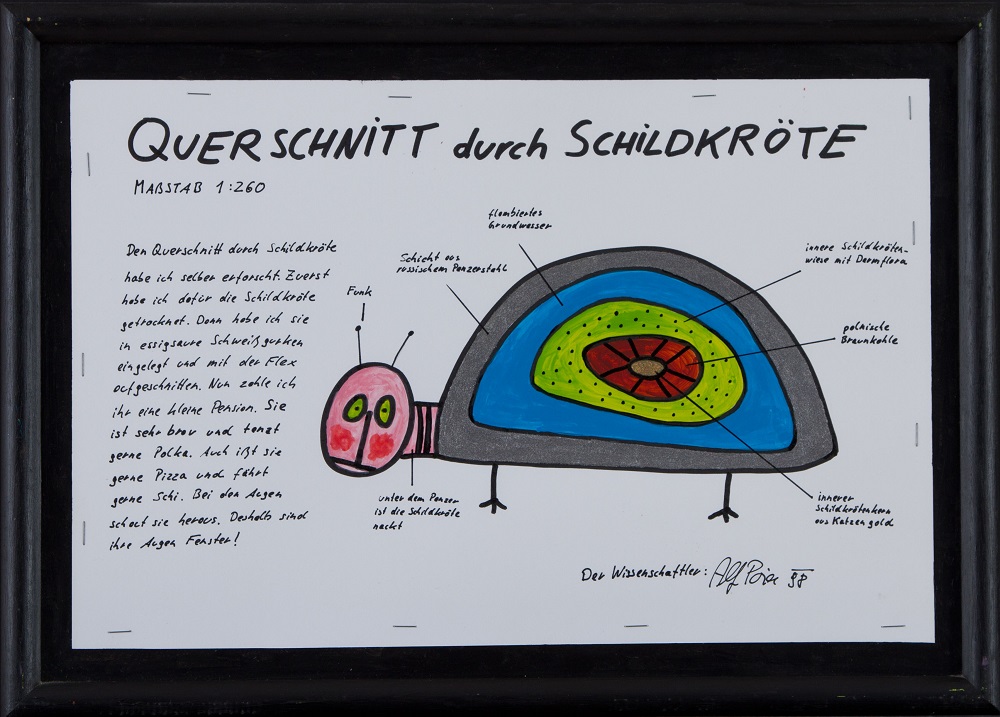 QUERSCHNITT durch SCHILDKRÖTE
MAßSTAB 1:260
Den Querschnitt durch Schildkröte
habe ich selber erforscht. Zuerst
habe ich dafür die Schildkröte
getrocknet. Dann habe ich sie
in essigsaure Schweißgurken
eingelegt und mit der Flex
aufgeschnitten. Nun zahle ich
ihr eine kleine Pension. Sie
ist sehr brav und tanzt
gerne Polka. Auch ißt sie
gerne Pizza und fährt
gerne Schi. Bei den Augen
schaut sie heraus. Deshalb sind
ihre Augen Fenster!
Funk
Schicht aus
russischem Panzerstahl
flambiertes
Grundwasser
innere Schildkröten-
wiese mit Darmflora
polnische
Braunkohle
innerer
Schildkrötenkern
aus Katzengold
unter dem Panzer
ist die Schildkröte
nackt
Der Wissenschaftler: Alf Poier 98